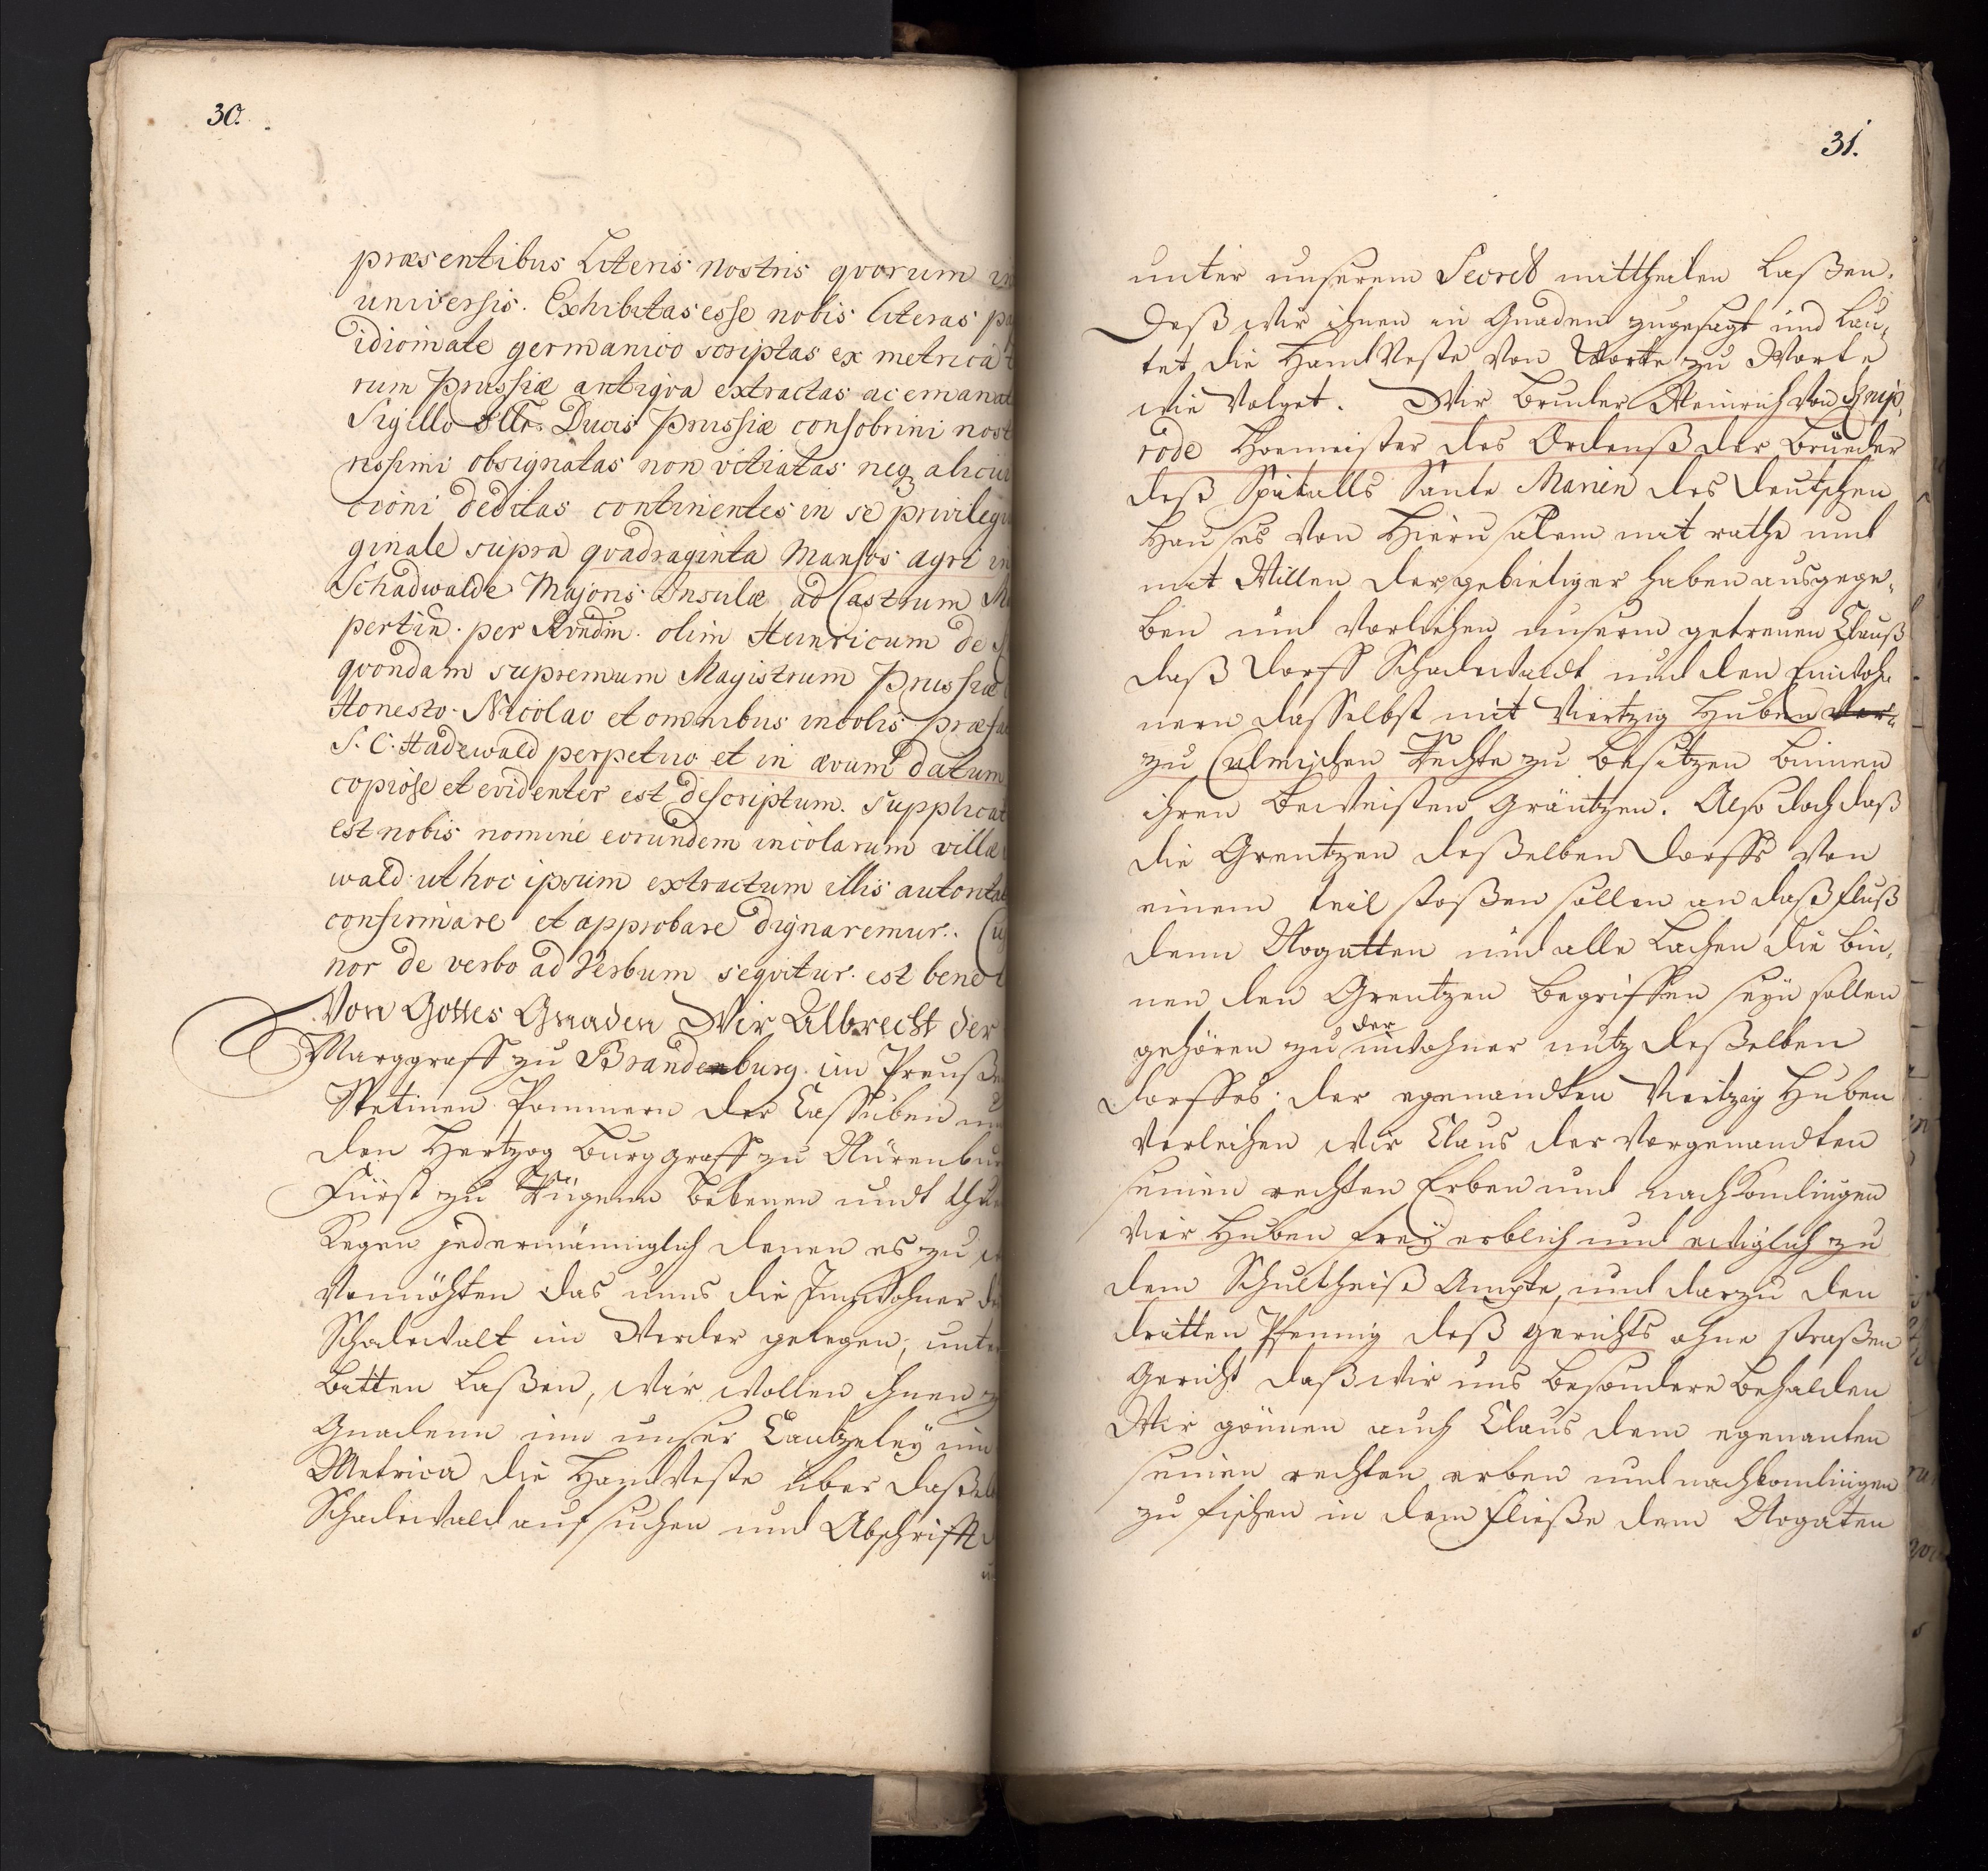 30.
præsentibus Literis nostris qvorum in
universis. Exhibitas esse nobis literas
idiomate germanico scriptas ex metrica
rum Prussiæ antiqva extractas ac emanat
Sigillo Ducis Prussiæ consobrini nost
rissimi obsignatas non vitiatas neq alicui
cioni deditas continentes in se privilegi
ginale supra qvadraginta Mansos agri in
Schadwalde Majoris Insulæ ad Castrum
pertin. per Rvndm. olim Heinricum de
qvondam supremum Magistrum Prussiæ
Honesto Nicolao et omnibus incolis præfa
S. C. Hadzewald perpetuo et in ævum datum
copiose et evidenter est descriptum. Supplicat
est nobis nomine eorundem incolarum villæ
wald ut hoc ipsum extractum illis autorita
confirmare et approbare dignaremur. Cu
nor de verbo ad Verbum seqvitur est bene
Von Gottes Gnaden Wir Albrecht der
Marggraff zu Brandenburg in Preuße
Stetinen Pommern der Cassuben un
den Hertzog Burggraff zu Nürenbur
Fürst zu Rügenn Bekenen undt thu
Kegen jedermänniglich denen es zu
Vernöhten das unns die Innwohner
Schadwalt im Werder gelegen, unter
bitten Laßen, wir wollen ihnen
Gnadenn inn unser Cantzeleÿ inn
Metrica die Handveste über daßelb
Schadewald aufsuchen und Abschrifft
31.
unter unserem Secret mittheilen Laßen.
Deß wir ihnen in Gnaden zugesagt und Lau¬
tet die Handveste von Worte zu Worte
wie Volget. Wir Bruder Weinrich von Knip¬
rode Homeister des Ordenß der Brueder
deß Spitalls Sante Marien des deutschen
Hauses von Hierusalem mit rathe und
mit Willen der gebietiger haben ausgege¬
ben und Vorliehen unserm getreuen Clauß
daß Dorff Schadewaldt und den Einwoh
nern dasselbst mit Viertzig Huben
zu Culmischen Rechte zu besitzen binnen
ihren beweisten Gräntzen. Also doch daß
die Grentzen deßelben Dorffs von
einem teil stoßen sollen an daß fluß
denn Nogatten und alle Lachen die bin¬
nen den Grentzen begriffen seyn sollen
gehören zu der inwohner nutz deßelben
Dorffes. der egenandten Viertzig Huben
Vorleihen wir Claus der Vorgenandten
seinen rechten Erben und nachkomlingen
Vier Huben freÿ erblich und ewiglich zu
dem Schultheiß Ampte, und darzu den
dritten Pfennig deß gerichts ohne straßen
gericht daß wir uns besondere behalden
Wir gönnen auch Claus dem egenanten
seinen rechten erben und nachkomlingen
zu fischen in dem fließe dem Nogaten